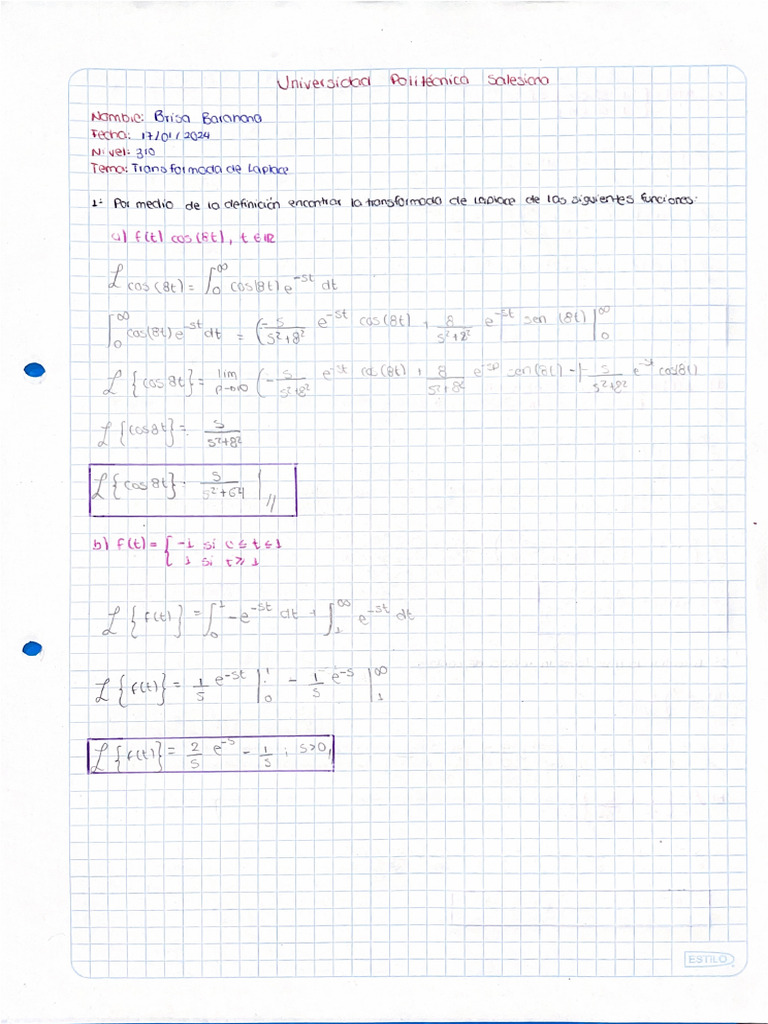 Universidad Politécnica Salesiana
Nombre: Brisa Barahona
Fecha: 17/01/2024
Nivel: 310
Tema: Transformada de Laplace
1- Por medio de la definición encontrar la transformada de Laplace de las siguientes funciones:
a) f(t) cos(8t), t ∈ IR
ℒ cos(8t) = ∫₀^∞ cos(8t) e^-st dt
∫₀^∞ cos(8t) e^-st dt = (-s/(s²+8²) e^-st cos(8t) + 8/(s²+8²) e^-st sen (8t) |₀^∞
ℒ {cos 8t} = lim p→∞ (-s/(s²+8²) e^-st cos(8t) + 8/(s²+8²) e^-sp sen(8t) - (- s/(s²+8²) e^-st cos(8t)
ℒ {cos 8t} = s/(s²+8²)
ℒ {cos 8t} = s/(s²+64) //
b) f(t) = { -1 si 0 ≤ t ≤ 1
{ 1 si t ≥ 1
ℒ {f(t)} = ∫₀^1 -e^-st dt + ∫₁^∞ e^-st dt
ℒ {f(t)} = 1/s e^-st |₀^1 - 1/s e^-s |₁^∞
ℒ {f(t)} = 2/s e^-s - 1/s ; s>0,
ESTILO